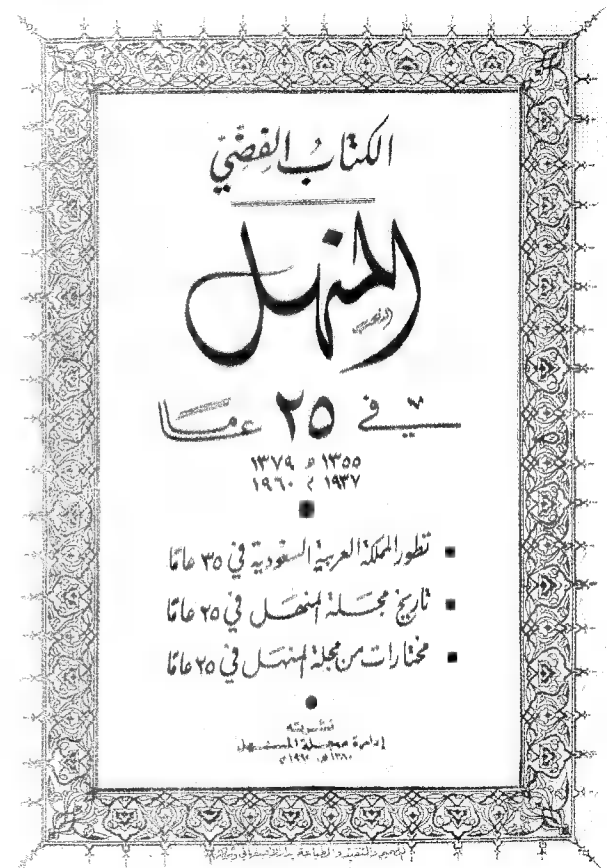 الكتاب الفِضِّيّ
المنهل
في ٢٥ عاما
١٣٥٥ هـ ١٣٧٩
١٩٣٧ م ١٩٦٠
▪ تطور المملكة العربية السعودية في ٣٥ عامًا
▪ تاريخ مجلة المنهل في ٢٥ عامًا
▪ مختارات من مجلة المنهل في ٢٥ عامًا
نشرته
إدارة مجلة المنهل
١٣٨٠ هـ